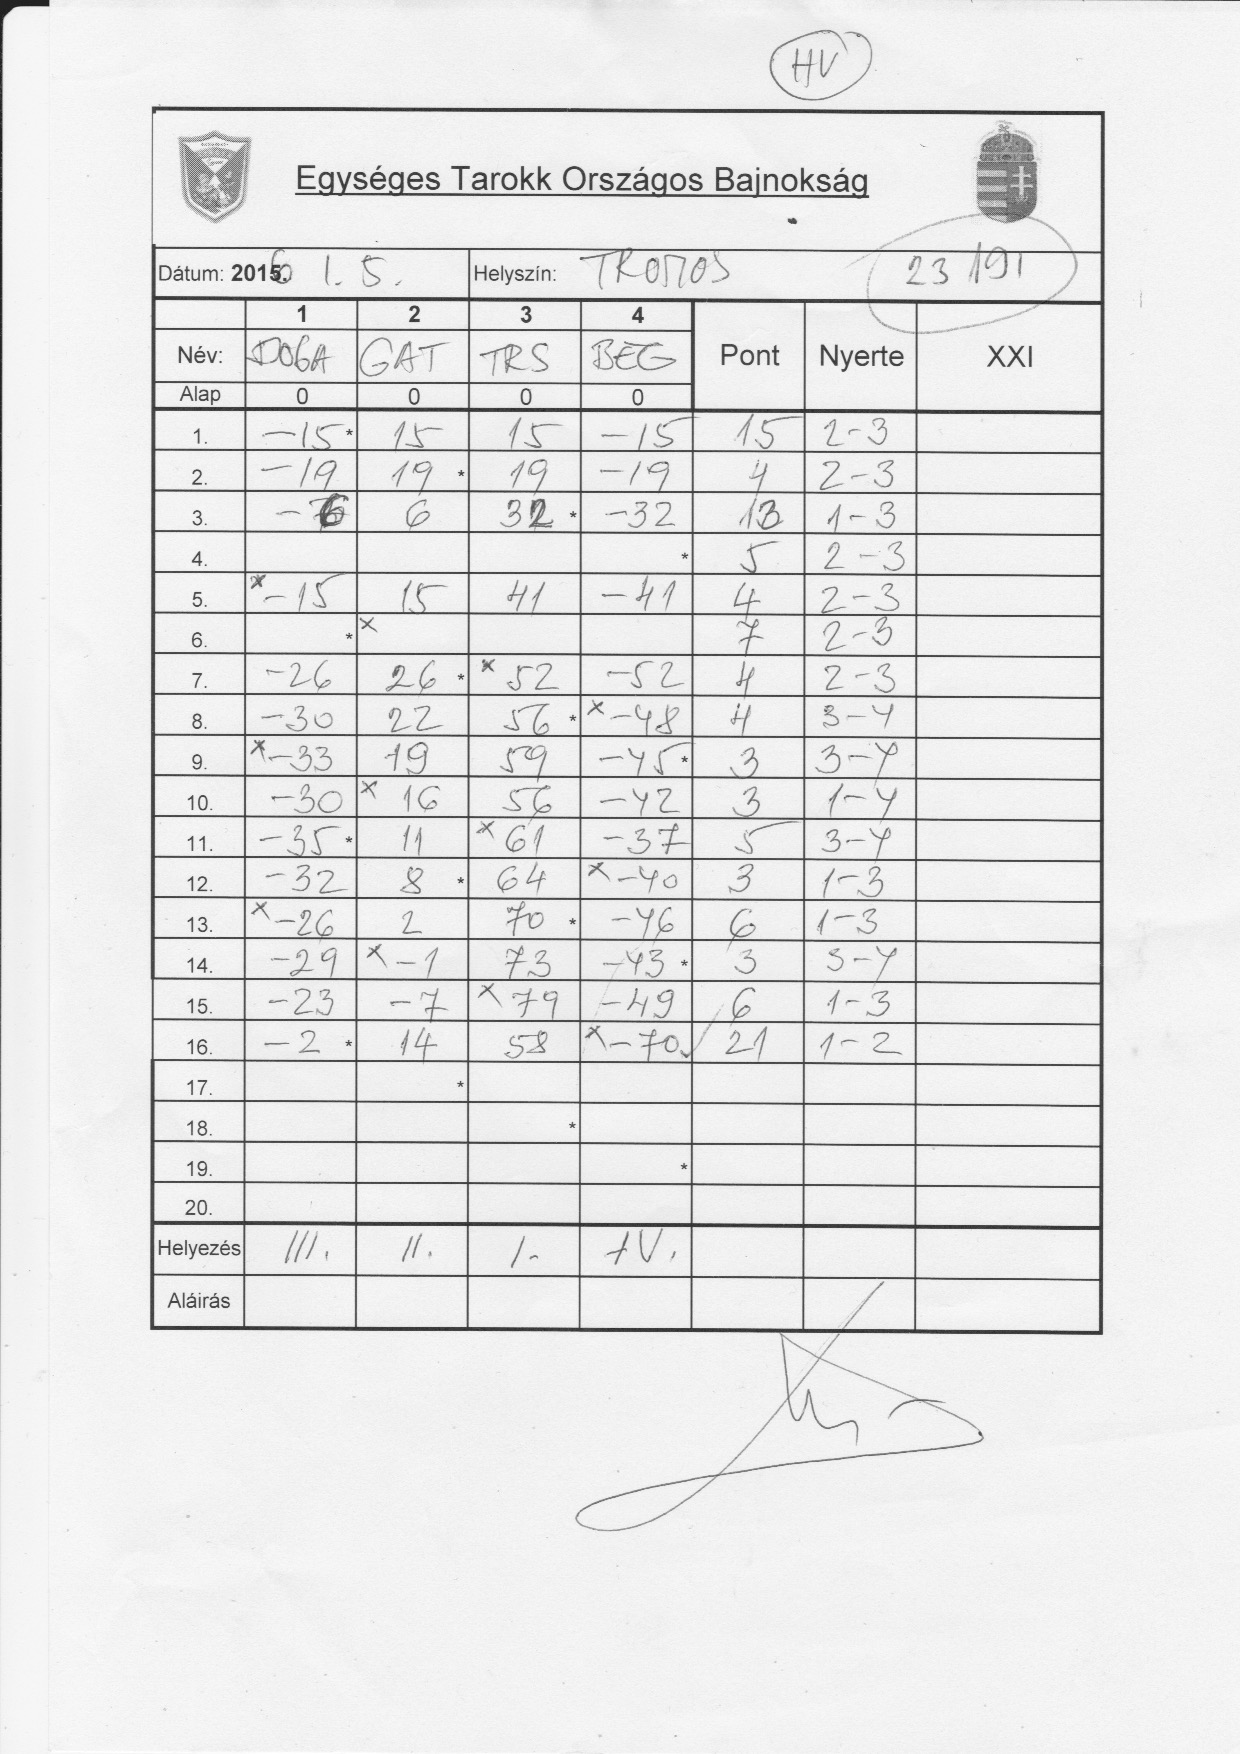 HV
Egységes Tarokk Országos Bajnokság
Dátum: 2016. I. 5. Helyszín: TROMOS 23/191
1 2 3 4
Név: DOGA GAT TRS BEG Pont Nyerte XXI
Alap 0 0 0 0
1. -15 * 15 15 -15 15 2-3
2. -19 19 * 19 -19 4 2-3
3. -6 6 32 * -32 13 1-3
4. * 5 2-3
5. x -15 15 41 -41 4 2-3
6. * x 7 2-3
7. -26 26 * x 52 -52 4 2-3
8. -30 22 56 * x -48 4 3-4
9. x -33 19 59 -45 * 3 3-4
10. -30 x 16 56 -42 3 1-4
11. -35 * 11 x 61 -37 5 3-4
12. -32 8 * 64 x -40 3 1-3
13. x -26 2 70 * -46 6 1-3
14. -29 x -1 73 -43 * 3 3-4
15. -23 -7 x 79 -49 6 1-3
16. -2 * 14 58 x -70 21 1-2
17. *
18. *
19. *
20.
Helyezés III. II. I. IV.
Aláirás